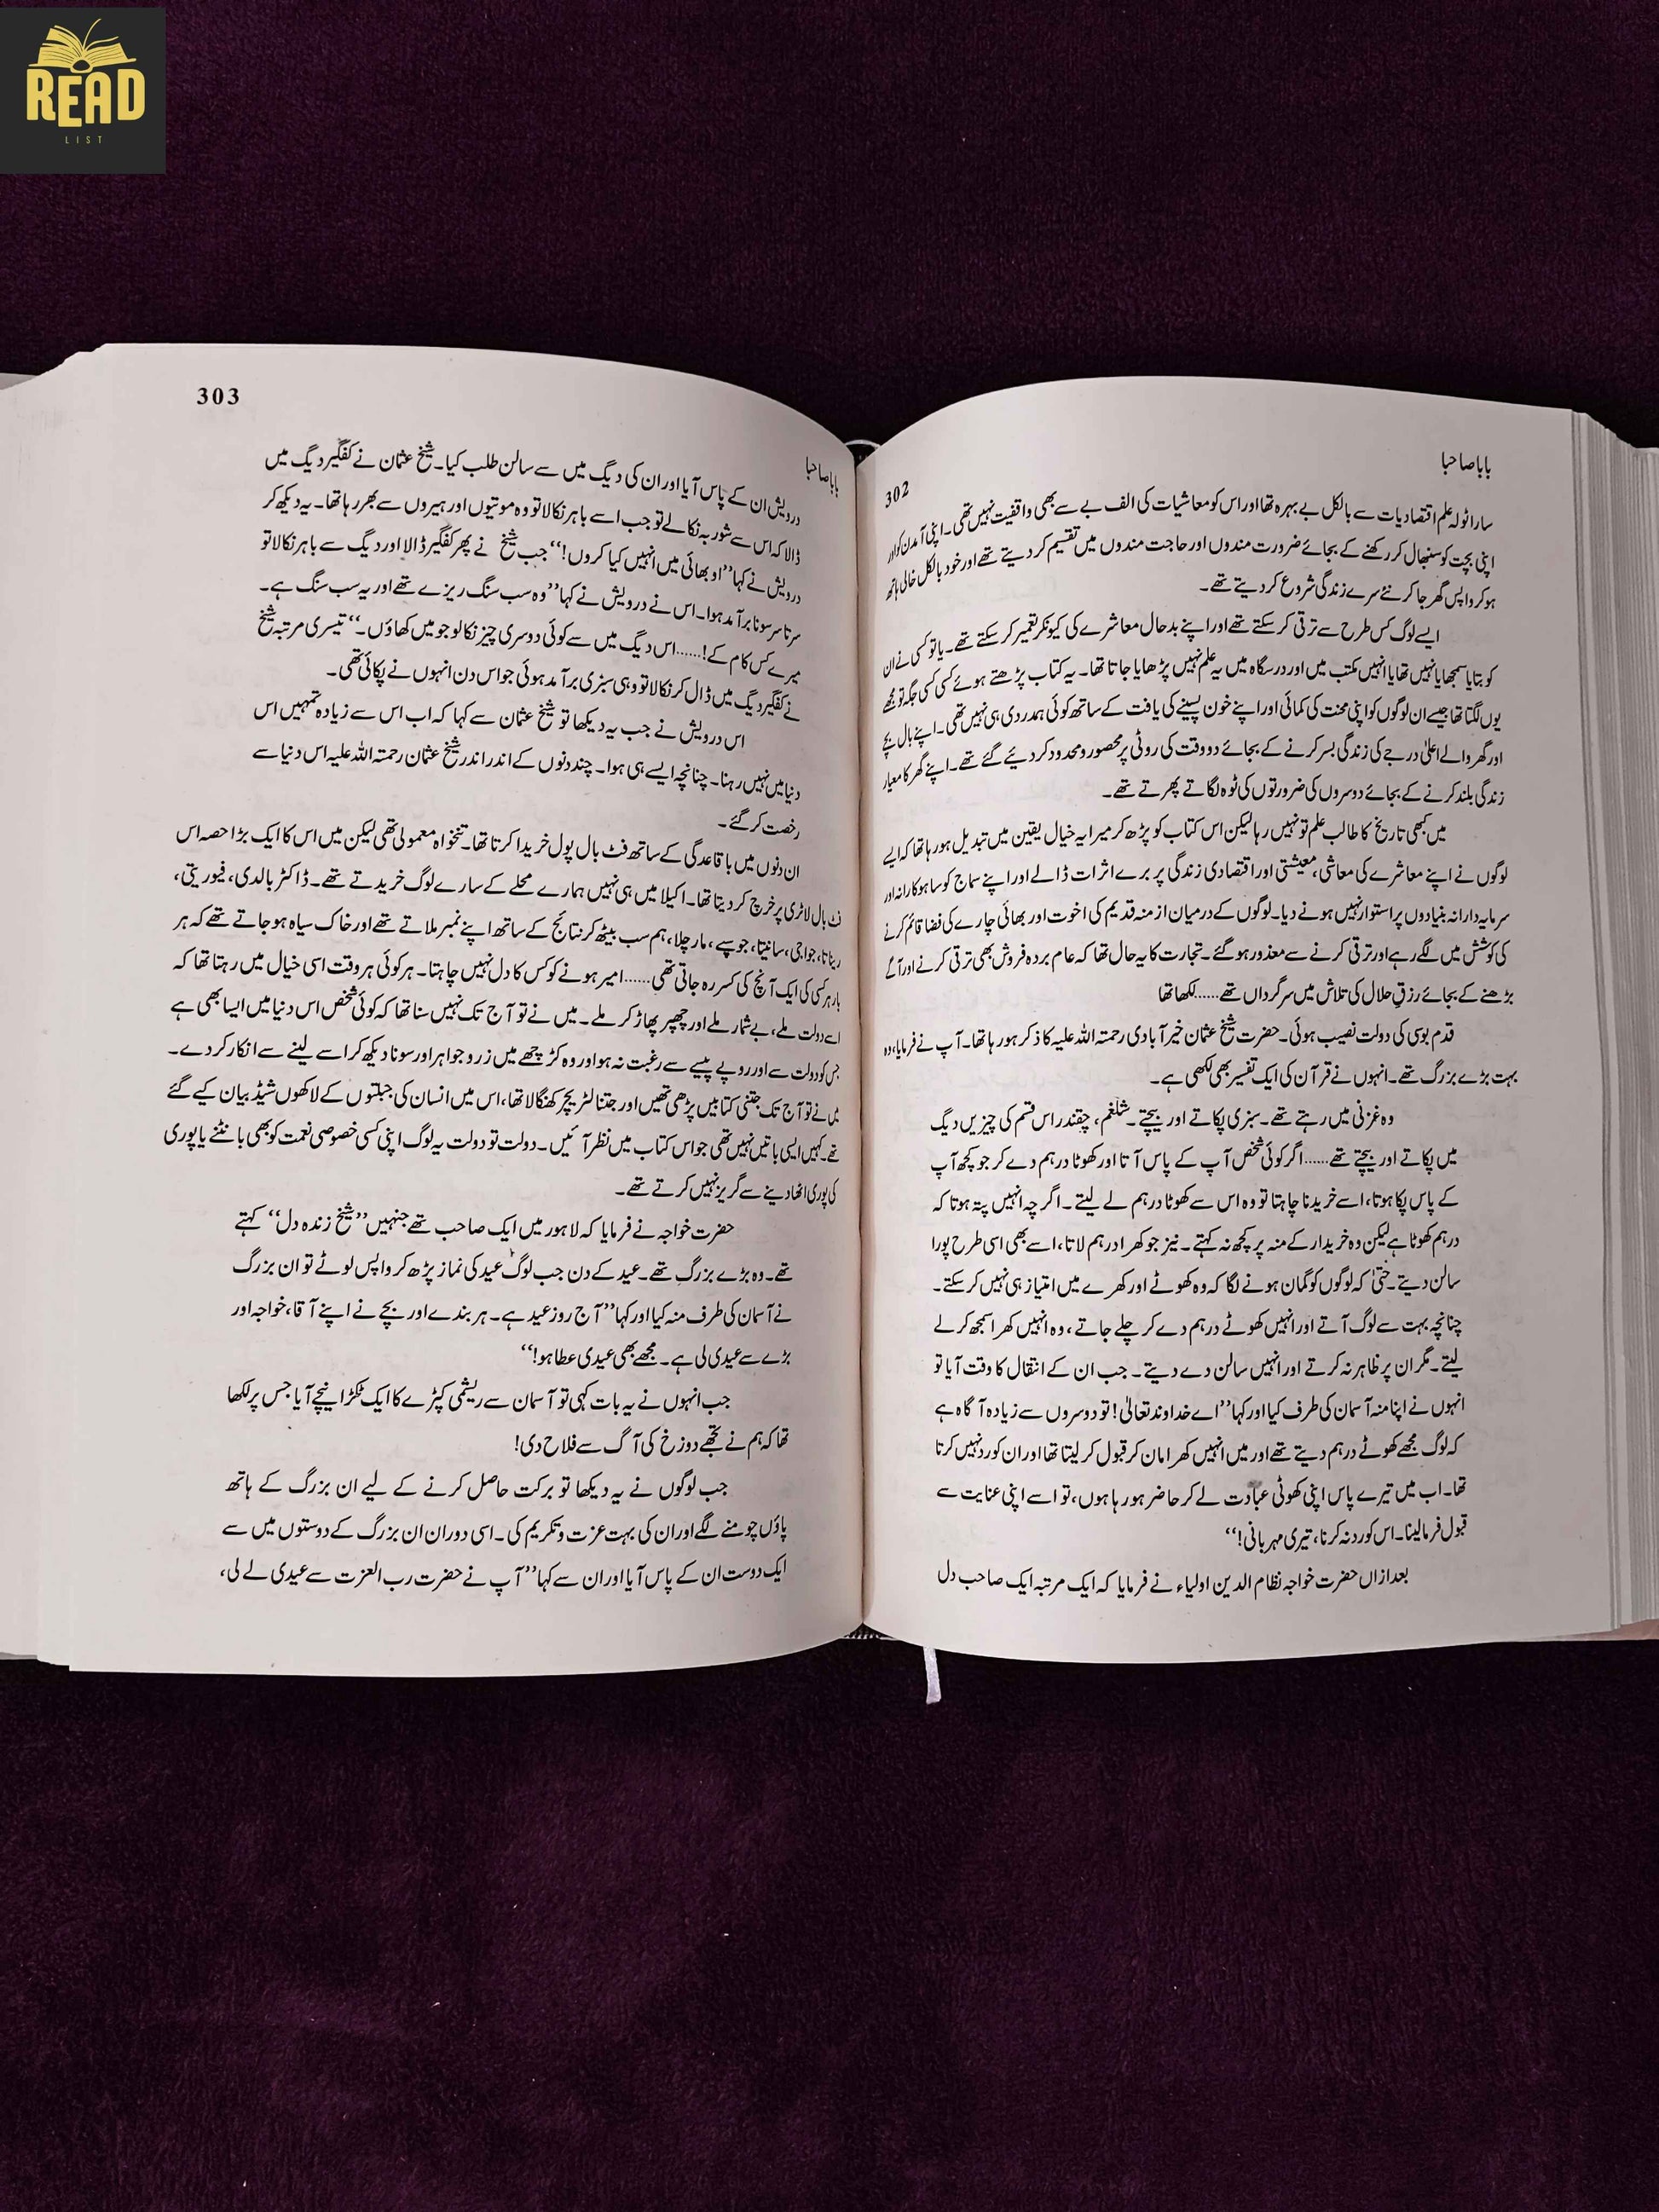 READ
LIST
باباصاحبا
302
سارا ٹولہ علم اقتصادیات سے بالکل بے بہرہ تھا اور اس کو معاشیات کی الف بے سے بھی واقفیت نہیں تھی۔ اپنی آمدن کو اور
اپنی بچت کو سنبھال کر رکھنے کے بجائے ضرورت مندوں اور حاجت مندوں میں تقسیم کر دیتے تھے اور خود بالکل خالی ہاتھ
ہو کر واپس گھر جا کر نئے سرے زندگی شروع کر دیتے تھے۔
ایسے لوگ کس طرح سے ترقی کر سکتے تھے اور اپنے بدحال معاشرے کی کیونکر تعمیر کر سکتے تھے۔ یا تو کسی نے ان
کو بتایا سمجھایا نہیں تھا یا انہیں مکتب میں اور درسگاہ میں یہ علم نہیں پڑھایا جاتا تھا۔ یہ کتاب پڑھتے ہوئے کسی کسی جگہ تو مجھے
یوں لگتا تھا جیسے ان لوگوں کو اپنی محنت کی کمائی اور اپنے خون پسینے کی یافت کے ساتھ کوئی ہمدردی ہی نہیں تھی۔ اپنے بال بچے
اور گھر والے اعلیٰ درجے کی زندگی بسر کرنے کے بجائے دو وقت کی روٹی پر محصور و محدود کر دیئے گئے تھے۔ اپنے گھر کا معیار
زندگی بلند کرنے کے بجائے دوسروں کی ضرورتوں کی ٹوہ لگاتے پھرتے تھے۔
میں کبھی تاریخ کا طالب علم تو نہیں رہا لیکن اس کتاب کو پڑھ کر میرا یہ خیال یقین میں تبدیل ہو رہا تھا کہ ایسے
لوگوں نے اپنے معاشرے کی معاشی، معیشتی اور اقتصادی زندگی پر برے اثرات ڈالے اور اپنے سماج کو ساہوکارانہ اور
سرمایہ دارانہ بنیادوں پر استوار نہیں ہونے دیا۔ لوگوں کے درمیان ازمنہ قدیم کی اخوت اور بھائی چارے کی فضا قائم کرنے
کی کوشش میں لگے رہے اور ترقی کرنے سے معذور ہو گئے۔ تجارت کا یہ حال تھا کہ عام بردہ فروش بھی ترقی کرنے اور آگے
بڑھنے کے بجائے رزقِ حلال کی تلاش میں سرگرداں تھے......لکھا تھا
قدم بوسی کی دولت نصیب ہوئی۔ حضرت شیخ عثمان خیر آبادی رحمتہ اللہ علیہ کا ذکر ہو رہا تھا۔ آپ نے فرمایا، وہ
بہت بڑے بزرگ تھے۔ انہوں نے قرآن کی ایک تفسیر بھی لکھی ہے۔
وہ غزنی میں رہتے تھے۔ سبزی پکاتے اور بیچتے۔ شلغم، چقندر اس قسم کی چیزیں دیگ
میں پکاتے اور بیچتے تھے......اگر کوئی شخص آپ کے پاس آتا اور کھوٹا درہم دے کر جو کچھ آپ
کے پاس پکا ہوتا، اسے خریدنا چاہتا تو وہ اس سے کھوٹا درہم لے لیتے۔ اگرچہ انہیں پتہ ہوتا کہ
درہم کھوٹا ہے لیکن وہ خریدار کے منہ پر کچھ نہ کہتے۔ نیز جو کھرا درہم لاتا، اسے بھی اسی طرح پورا
سالن دیتے۔ حتیٰ کہ لوگوں کو گمان ہونے لگا کہ وہ کھوٹے اور کھرے میں امتیاز ہی نہیں کر سکتے۔
چنانچہ بہت سے لوگ آتے اور انہیں کھوٹے درہم دے کر چلے جاتے، وہ انہیں کھرا سمجھ کر لے
لیتے۔ مگر ان پر ظاہر نہ کرتے اور انہیں سالن دے دیتے۔ جب ان کے انتقال کا وقت آیا تو
انہوں نے اپنا منہ آسمان کی طرف کیا اور کہا ’’اے خداوند تعالیٰ! تو دوسروں سے زیادہ آگاہ ہے
کہ لوگ مجھے کھوٹے درہم دیتے تھے اور میں انہیں کھرا مان کر قبول کر لیتا تھا اور ان کو رد نہیں کرتا
تھا۔ اب میں تیرے پاس اپنی کھوٹی عبادت لے کر حاضر ہو رہا ہوں، تو اسے اپنی عنایت سے
قبول فرما لینا۔ اس کو رد نہ کرنا، تیری مہربانی!‘‘
بعد ازاں حضرت خواجہ نظام الدین اولیاء نے فرمایا کہ ایک مرتبہ ایک صاحب دل
303
باباصاحبا
درویش ان کے پاس آیا اور ان کی دیگ میں سے سالن طلب کیا۔ شیخ عثمان نے کفگیر دیگ میں
ڈالا کہ اس سے شوربہ نکالے تو جب اسے باہر نکالا تو وہ موتیوں اور ہیروں سے بھر رہا تھا۔ یہ دیکھ کر
درویش نے کہا ’’او بھائی میں انہیں کیا کروں!‘‘ جب شیخ نے پھر کفگیر ڈالا اور دیگ سے باہر نکالا تو
سرتاسر سونا برآمد ہوا۔ اس نے درویش نے کہا ’’وہ سب سنگ ریزے تھے اور یہ سب سنگ ہے۔
میرے کس کام کے!......اس دیگ میں سے کوئی دوسری چیز نکالو جو میں کھاؤں۔‘‘ تیسری مرتبہ شیخ
نے کفگیر دیگ میں ڈال کر نکالا تو وہی سبزی برآمد ہوئی جو اس دن انہوں نے پکائی تھی۔
اس درویش نے جب یہ دیکھا تو شیخ عثمان سے کہا کہ اب اس سے زیادہ تمہیں اس
دنیا میں نہیں رہنا۔ چنانچہ ایسے ہی ہوا۔ چند دنوں کے اندر اندر شیخ عثمان رحمتہ اللہ علیہ اس دنیا سے
رخصت کر گئے۔
ان دنوں میں باقاعدگی کے ساتھ فٹ بال پول خریدا کرتا تھا۔ تنخواہ معمولی تھی لیکن میں اس کا ایک بڑا حصہ اس
فٹ بال لاٹری پر خرچ کر دیتا تھا۔ اکیلا میں ہی نہیں ہمارے محلے کے سارے لوگ خریدتے تھے۔ ڈاکٹر بالدی، فیوریتی،
ریناتا، جواجی، سانیتا، جوسپے، مارچلا، ہم سب بیٹھ کر نتائج کے ساتھ اپنے نمبر ملاتے تھے اور خاک سیاہ ہو جاتے تھے کہ ہر
بار ہر کسی کی ایک آنچ کی کسر رہ جاتی تھی......امیر ہونے کو کس کا دل نہیں چاہتا۔ ہر کوئی ہر وقت اسی خیال میں رہتا تھا کہ
اسے دولت ملے، بے شمار ملے اور چھپر پھاڑ کر ملے۔ میں نے تو آج تک نہیں سنا تھا کہ کوئی شخص اس دنیا میں ایسا بھی ہے
جس کو دولت سے اور روپے پیسے سے رغبت نہ ہو اور وہ کڑچھے میں زر و جواہر اور سونا دیکھ کر اسے لینے سے انکار کر دے۔
میں نے تو آج تک جتنی کتابیں پڑھی تھیں اور جتنا لٹریچر کھنگالا تھا، اس میں انسان کی جبلتوں کے لاکھوں شیڈ بیان کیے گئے
تھے۔ کہیں ایسی باتیں نہیں تھی جو اس کتاب میں نظر آئیں۔ دولت تو دولت یہ لوگ اپنی کسی خصوصی نعمت کو بھی بانٹنے یا پوری
کی پوری اٹھا دینے سے گریز نہیں کرتے تھے۔
حضرت خواجہ نے فرمایا کہ لاہور میں ایک صاحب تھے جنہیں ’’شیخ زندہ دل‘‘ کہتے
تھے۔ وہ بڑے بزرگ تھے۔ عید کے دن جب لوگ عید کی نماز پڑھ کر واپس لوٹے تو ان بزرگ
نے آسمان کی طرف منہ کیا اور کہا ’’آج روز عید ہے۔ ہر بندے اور بچے نے اپنے آقا، خواجہ اور
بڑے سے عیدی لی ہے۔ مجھے بھی عیدی عطا ہو!‘‘
جب انہوں نے یہ بات کہی تو آسمان سے ریشمی کپڑے کا ایک ٹکڑا نیچے آیا جس پر لکھا
تھا کہ ہم نے تجھے دوزخ کی آگ سے فلاح دی!
جب لوگوں نے یہ دیکھا تو برکت حاصل کرنے کے لیے ان بزرگ کے ہاتھ
پاؤں چومنے لگے اور ان کی بہت عزت و تکریم کی۔ اسی دوران ان بزرگ کے دوستوں میں سے
ایک دوست ان کے پاس آیا اور ان سے کہا ’’آپ نے حضرت رب العزت سے عیدی لے لی،